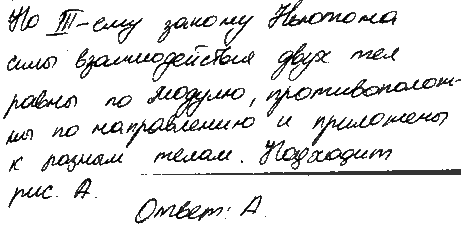 По III-ему закону Ньютона
силы взаимодействия двух тел
равны по модулю, противополож-
ны по направлению и приложены
к разным телам. Подходит
рис. А.
Ответ: А.